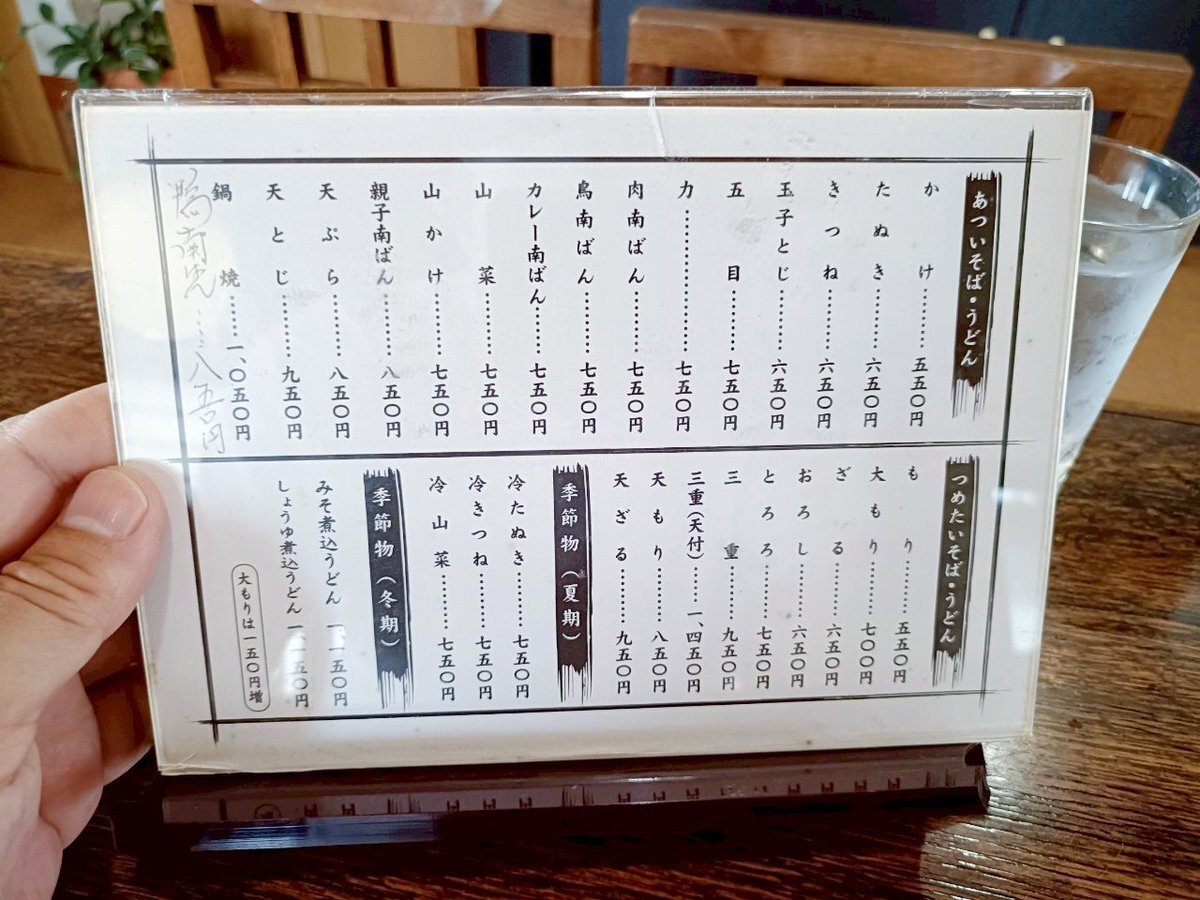 あついそば・うどん
かけ………五五〇円
たぬき………六五〇円
きつね………六五〇円
玉子とじ………六五〇円
五目………七五〇円
力………七五〇円
肉南ばん………七五〇円
鳥南ばん………七五〇円
カレー南ばん………七五〇円
山菜………七五〇円
山かけ………七五〇円
親子南ばん………八五〇円
天ぷら………八五〇円
天とじ………九五〇円
鍋焼………一、〇五〇円
鴨南ばん……八五〇円
つめたいそば・うどん
もり………五五〇円
大もり………七〇〇円
ざる………六五〇円
おろし………六五〇円
とろろ………七五〇円
三重………九五〇円
三重(天付)……一、四五〇円
天もり………八五〇円
天ざる………九五〇円
季節物(夏期)
冷たぬき………七五〇円
冷きつね………七五〇円
冷山菜………七五〇円
季節物(冬期)
みそ煮込うどん 一、一五〇円
しょうゆ煮込うどん 一、一五〇円
大もりは一五〇円増